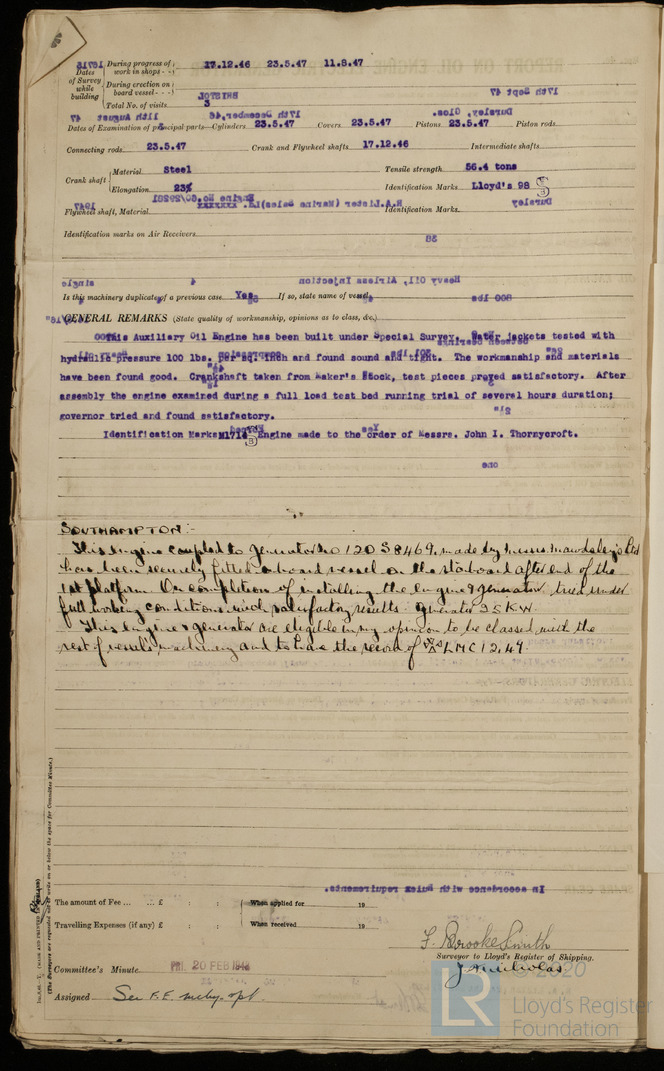 Dates of Survey while building
During progress of work in shops - - 17.12.46 23.5.47 11.8.47
During erection on board vessel - - -
Total No. of visits 3
Dates of Examination of principal parts—Cylinders 23.5.47 Covers 23.5.47 Pistons 23.5.47 Piston rods
Connecting rods 23.5.47 Crank and Flywheel shafts 17.12.46 Intermediate shafts
Crank shaft { Material Steel Tensile strength 56.4 tons
Elongation 23% Identification Marks Lloyd's 98
Flywheel shaft, Material Identification Marks
Identification marks on Air Receivers
Is this machinery duplicate of a previous case Yes If so, state name of vessel
GENERAL REMARKS (State quality of workmanship, opinions as to class, &c.)
This Auxiliary Oil Engine has been built under Special Survey. Water jackets tested with
hydraulic pressure 100 lbs. per sq. inch and found sound and tight. The workmanship and materials
have been found good. Crankshaft taken from Maker's Stock, test pieces proved satisfactory. After
assembly the engine examined during a full load test bed running trial of several hours duration;
governor tried and found satisfactory.
Identification Marks M1714 Engine made to the order of Messrs. John I. Thornycroft.
SOUTHAMPTON:-
This engine coupled to Generator No 120 S 8469, made by Messrs Mawdsley's Ltd
has been securely fitted aboard vessel on the starboard after end of the
1st platform. On completion of installing the engine & generator tried under
full working conditions with satisfactory results. Generator 25 KW.
This engine & generator are eligible in my opinion to be classed with the
rest of vessel's machinery and to have the record of LMC 12.47.
In accordance with Rules requirements.
The amount of Fee ... ... £ : : When applied for 19
Travelling Expenses (if any) £ : : When received 19
F. Brooke Smith
Surveyor to Lloyd's Register of Shipping.
J. Nicholas
Committee's Minute FRI. 20 FEB 1948
Assigned See F.E. mchy. rpt.
(The Surveyors are requested not to write on or below the space for Committee Minute.)
©2020
LR Lloyd's Register Foundation